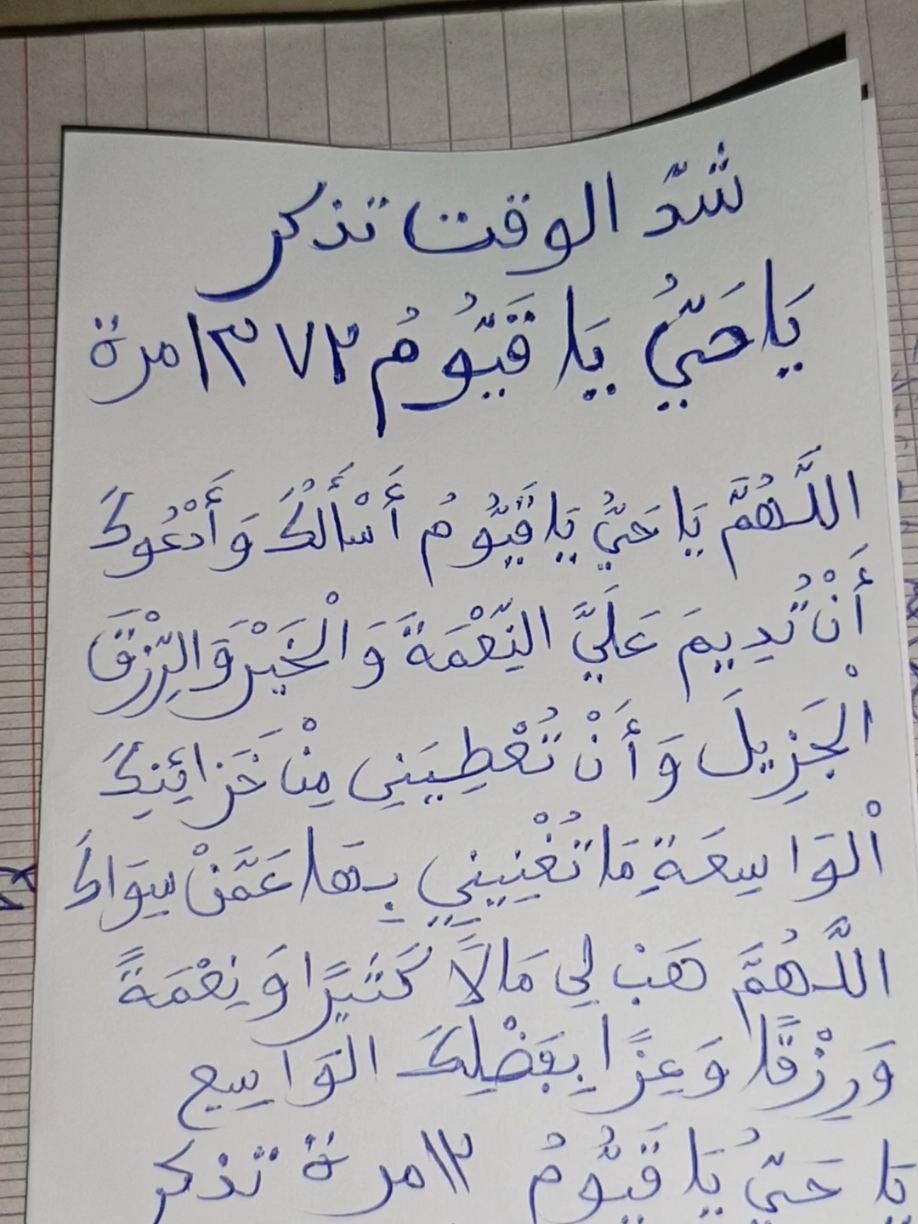 شدّ الوقت تذكر
يَا حَيُّ يَا قَيُّومُ ١٣٧٢ مرة
اللَّهُمَّ يَا حَيُّ يَا قَيُّومُ أَسْأَلُكَ وَأَدْعُوكَ
أَنْ تُدِيمَ عَلَيَّ النِّعْمَةَ وَالْخَيْرَ وَالرِّزْقَ
الْجَزِيلَ وَأَنْ تُعْطِيَنِي مِنْ خَزَائِنِكَ
الْوَاسِعَةِ مَا تُغْنِيَنِي بِهَا عَمَّنْ سِوَاكَ
اللَّهُمَّ هَبْ لِي مَالاً كَثِيرًا وَنِعْمَةً
وَرِزْقًا وَعِزًّا بِفَضْلِكَ الْوَاسِعِ
يَا حَيُّ يَا قَيُّومُ ١٢ مرة تذكر